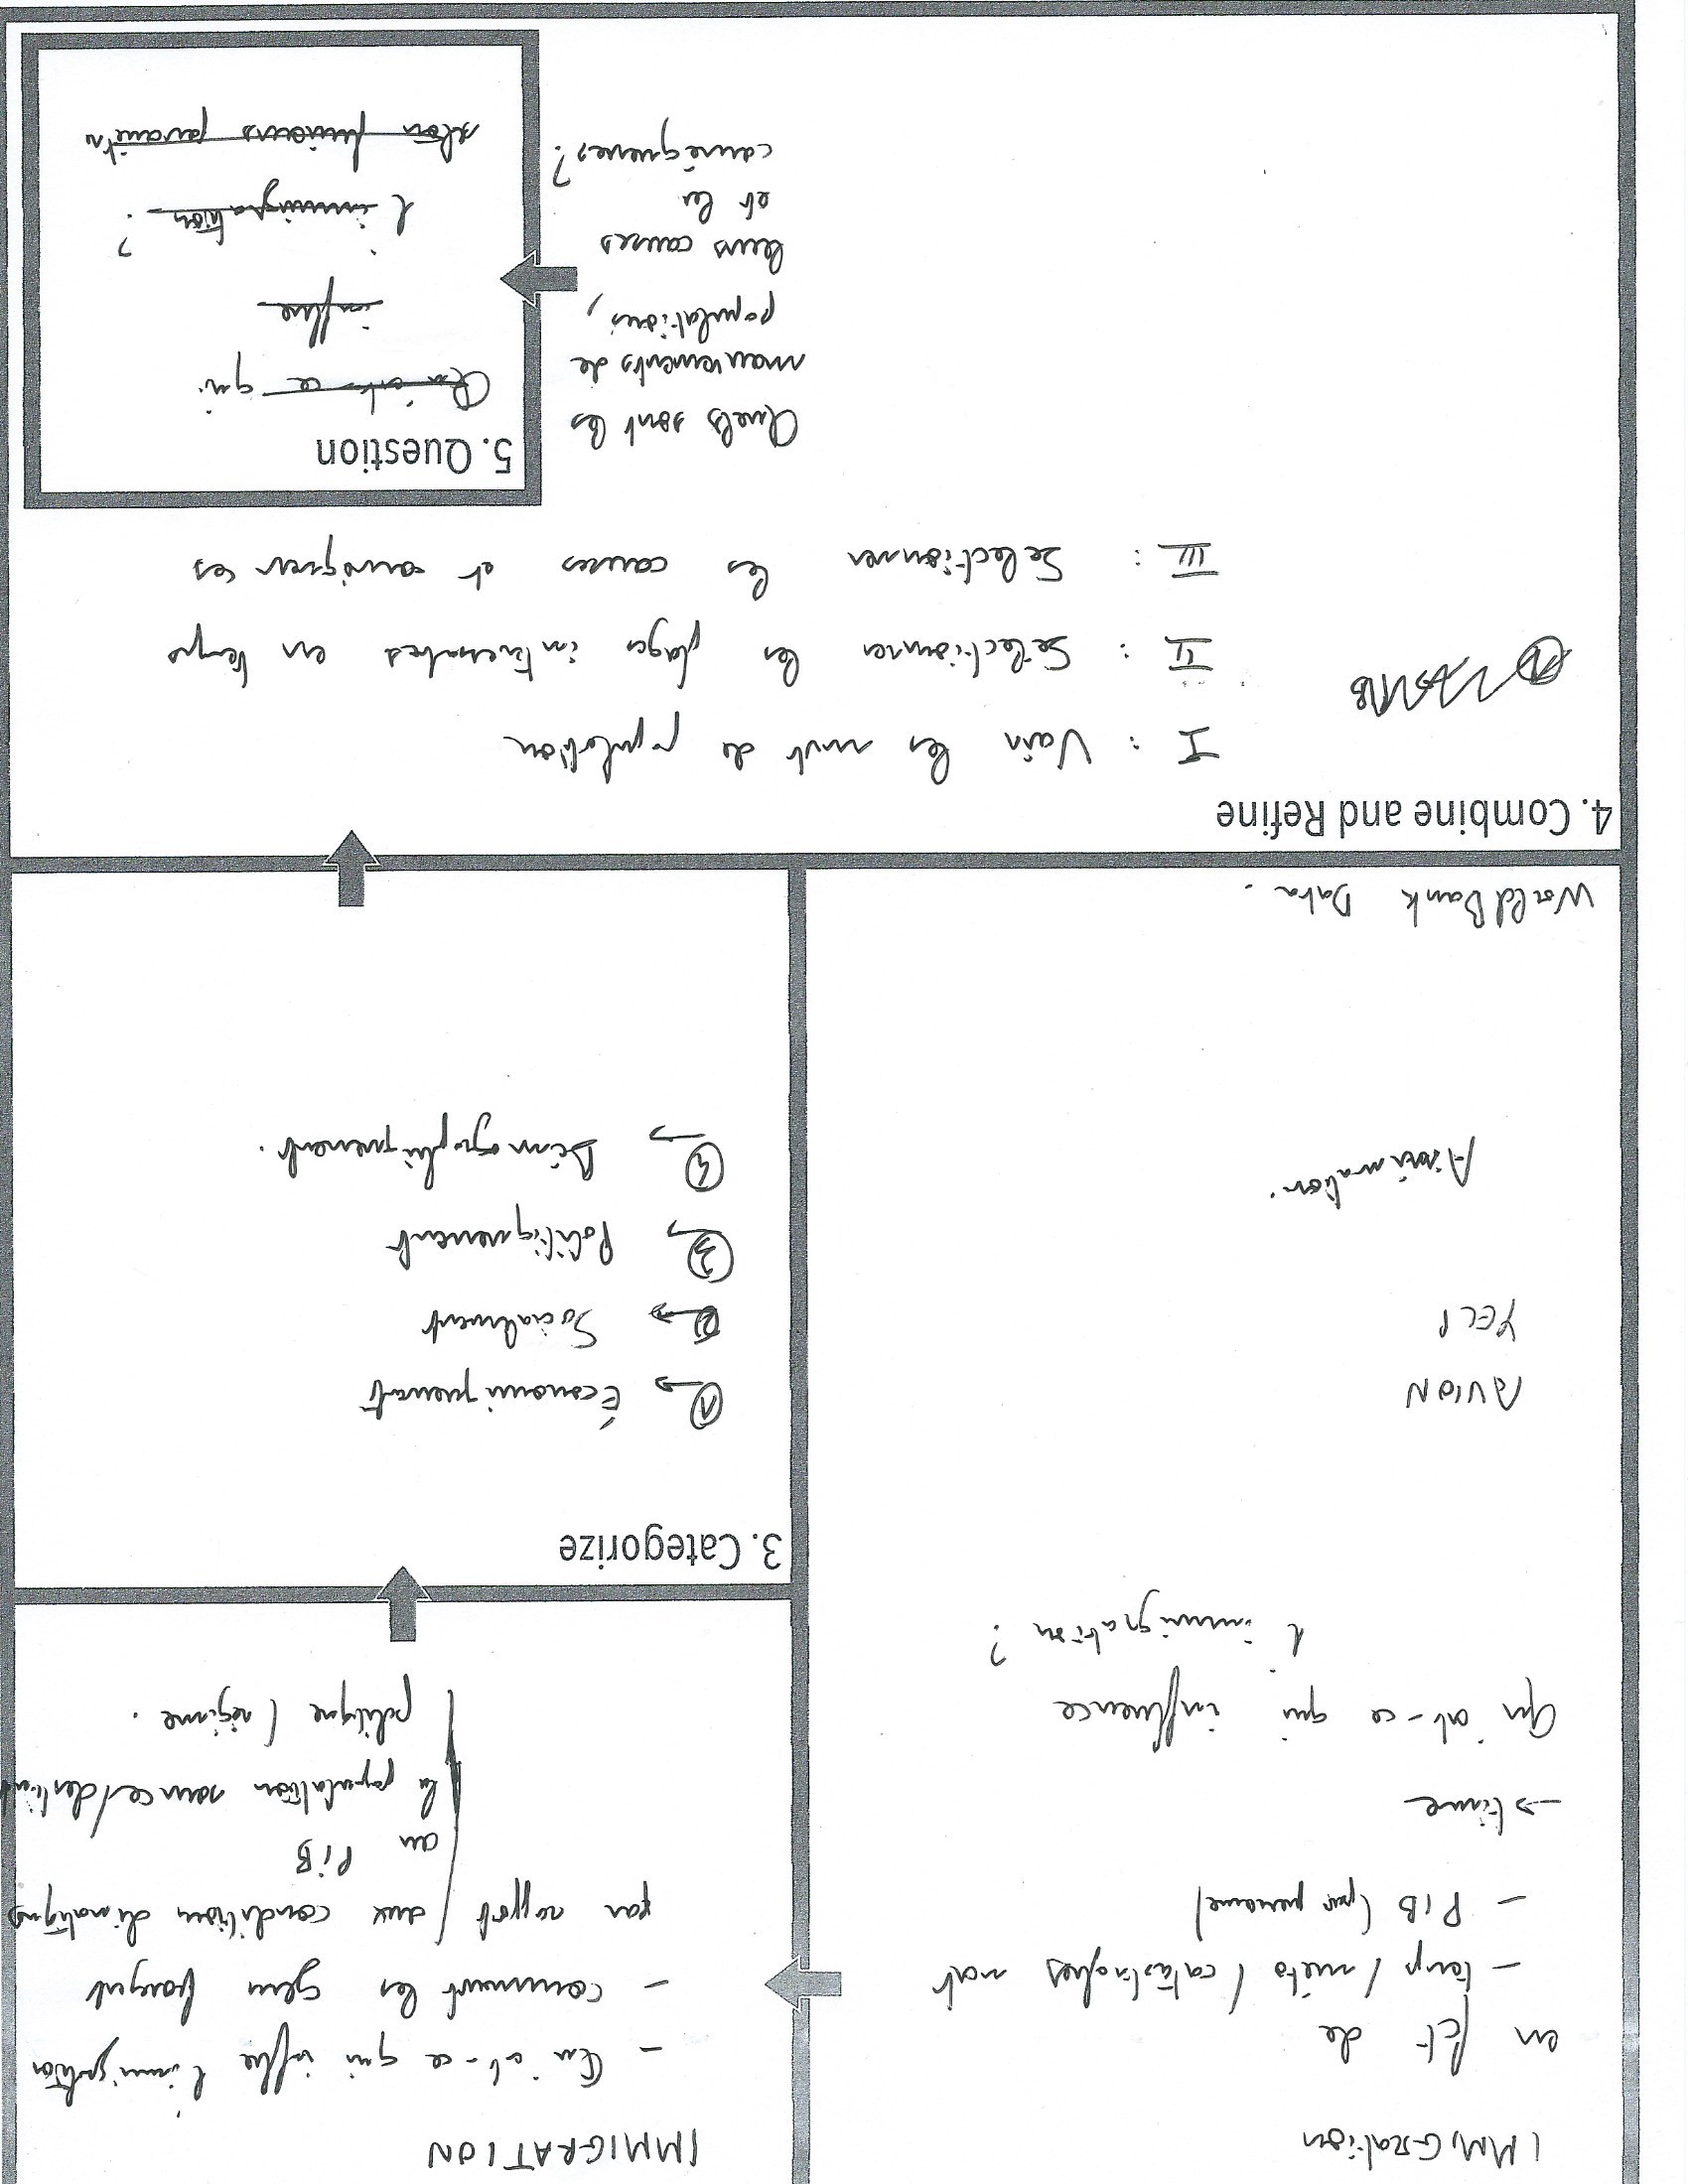 IMMIGration
en fct de
- temp / méto / catastrophes nat
- PIB (par personne)
→ time
Qu'est-ce qui influence
l'immigration ?
AVION
YELP
WorldBank Data.
IMMIGRATION
- Qu'est-ce qui influe l'immigration
- comment les gens bougent
par rapport / aux conditions climatiques
au PiB
la population source/destina
politique / régime.
3. Categorize
① → Économiquement
② → Socialement
③ → Politiquement
④ → Démographiquement.
4. Combine and Refine
I : Voir les mvt de population
II : Sélectionner les plages intéressantes en temps
III : Selectionner les causes et conséquences
Quels sont les
mouvements de
populations,
leurs causes
et les
conséquences ?
5. Question
Qu'est-ce qui
influe
l'immigration ?
selon plusieurs paramètre